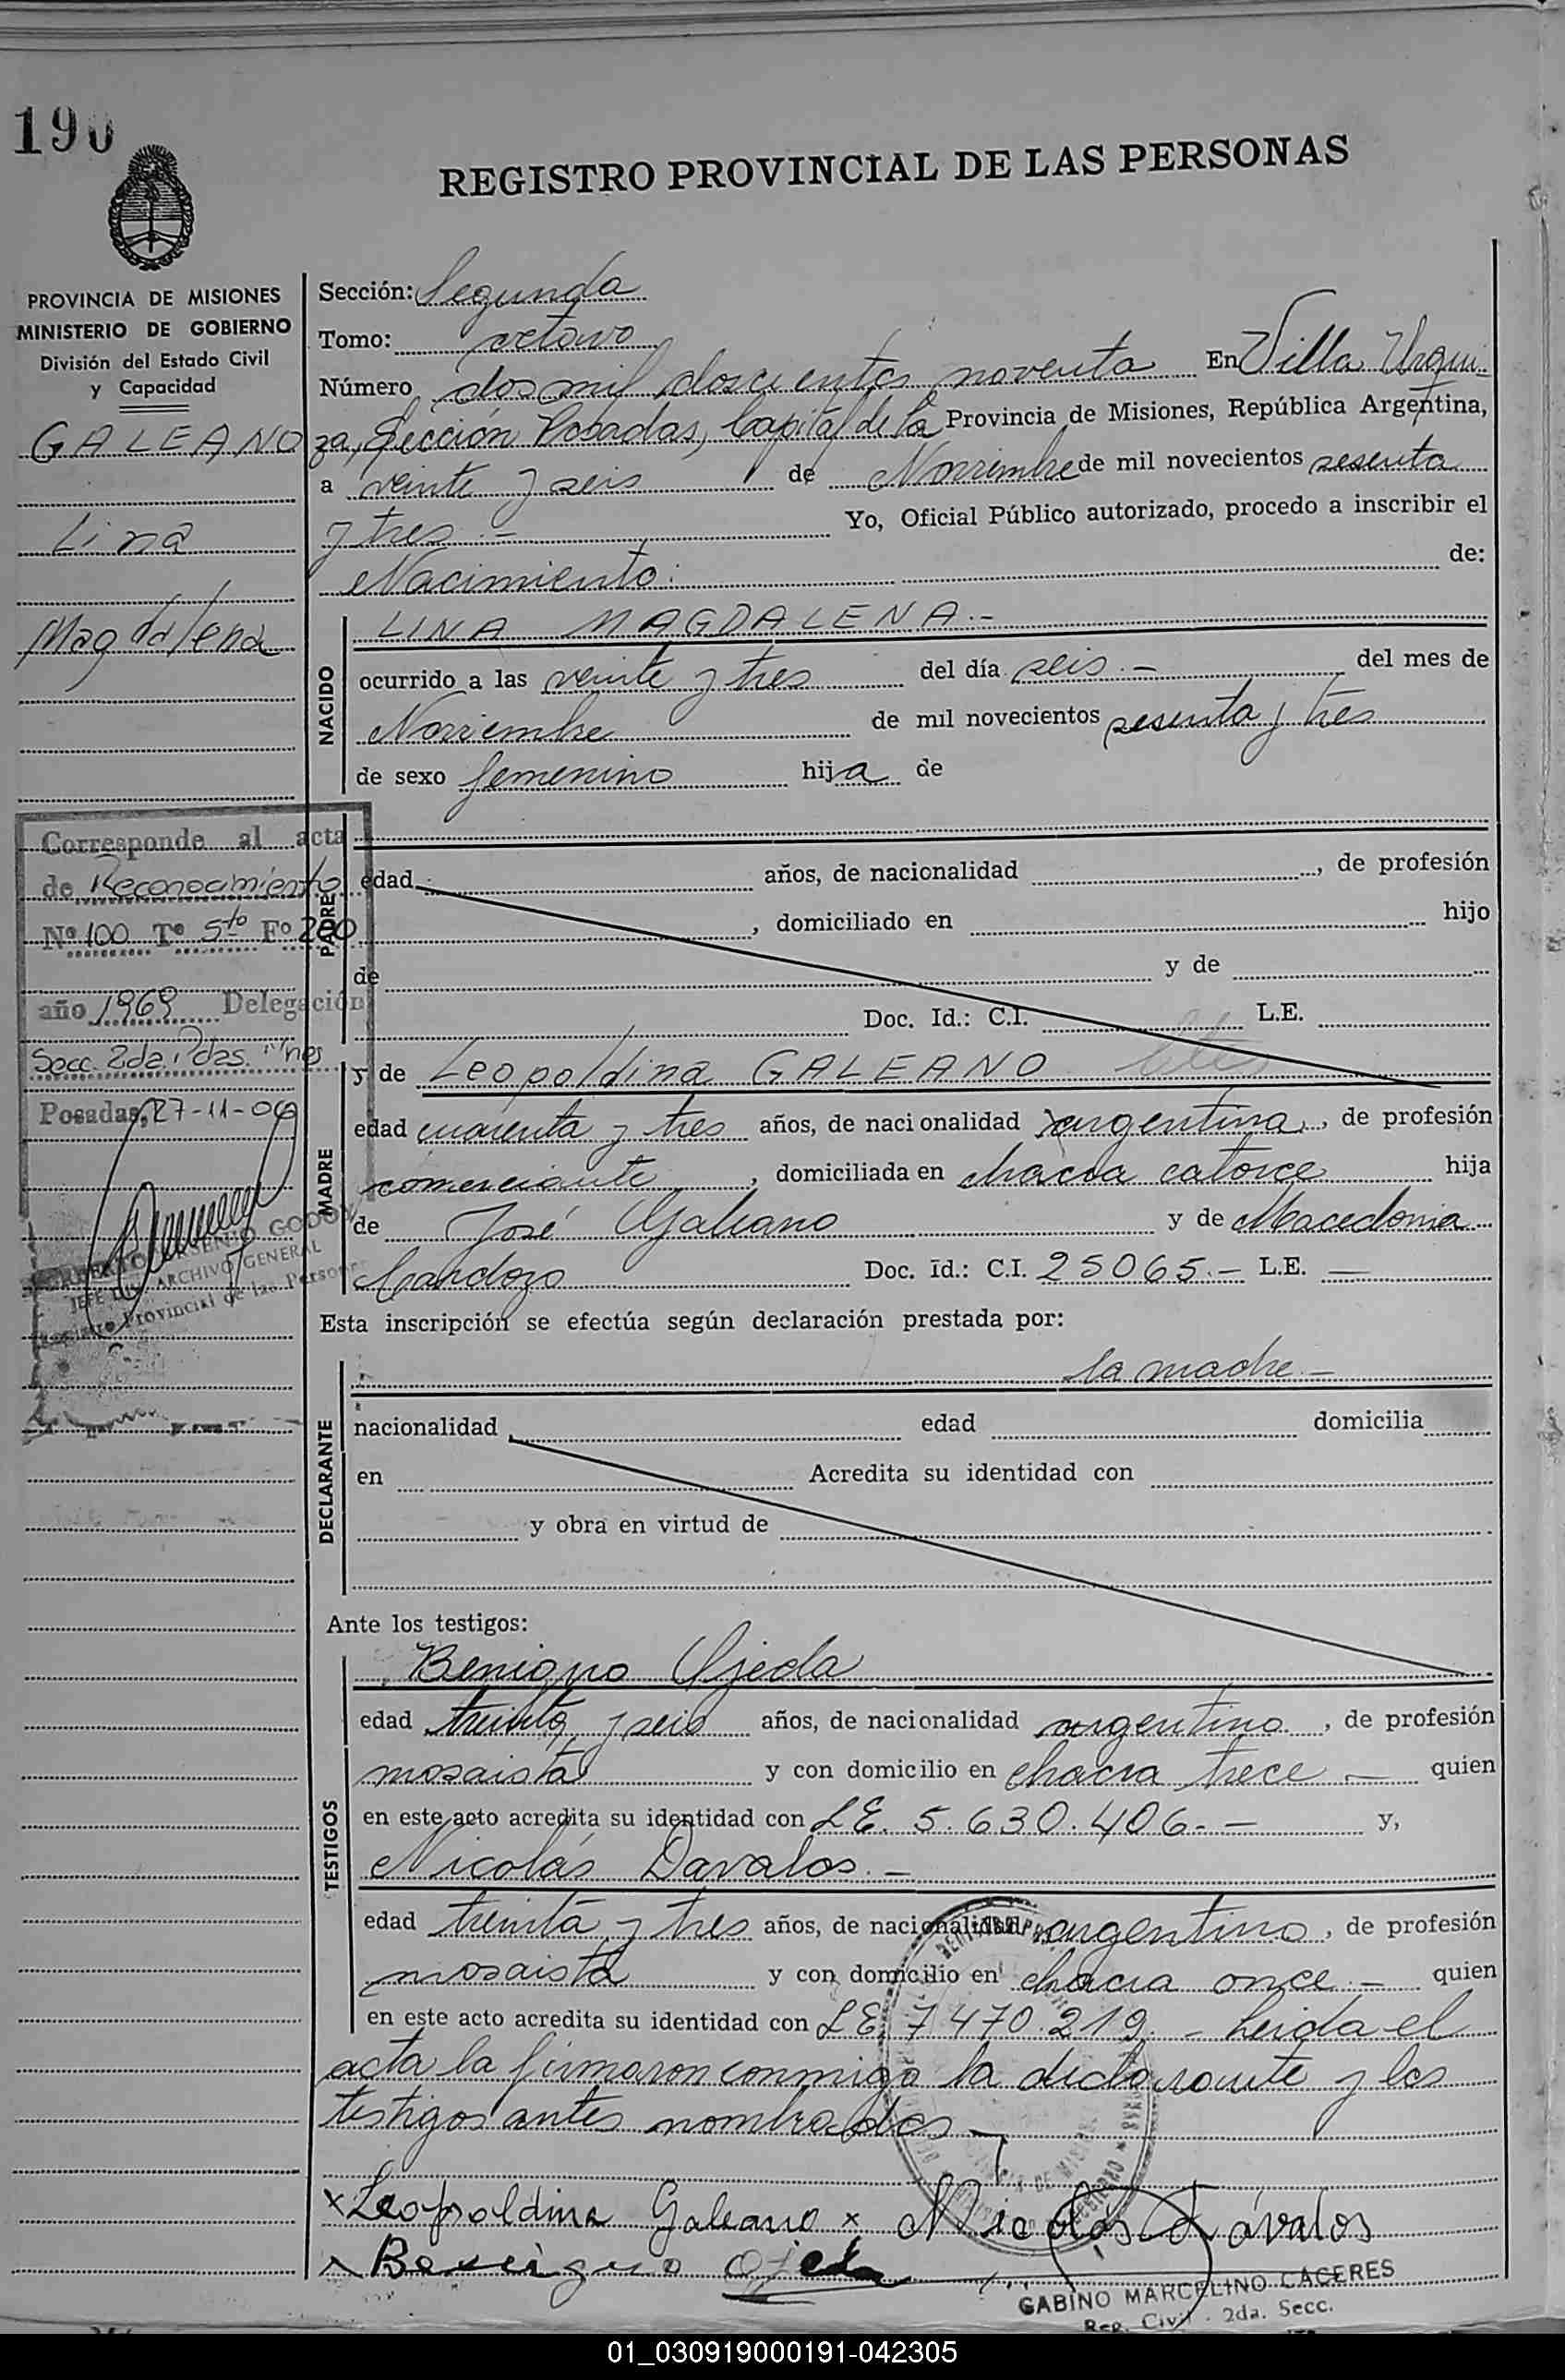 190
REGISTRO PROVINCIAL DE LAS PERSONAS
PROVINCIA DE MISIONES
MINISTERIO DE GOBIERNO
División del Estado Civil
y Capacidad
GALEANO
Lina
Magdalena
Corresponde al acta
de Reconocimiento
Nº 100 Tº 5to Fº 200
año 1969 Delegación
Secc. 2da. Pdas. Mnes
Posadas, 27-11-09
ARSENIO GODOY
JEFE ARCHIVO GENERAL
Registro Provincial de las Personas
Sección: Segunda
Tomo: octavo
Número dos mil doscientos noventa En Villa Urqui-
za, Sección Posadas, Capital de la Provincia de Misiones, República Argentina,
a veinte y seis de Noviembre de mil novecientos sesenta
y tres.- Yo, Oficial Público autorizado, procedo a inscribir el
Nacimiento: de:
NACIDO
LINA MAGDALENA.-
ocurrido a las veinte y tres del día seis.- del mes de
Noviembre de mil novecientos sesenta y tres
de sexo femenino hija de
PADRE
edad años, de nacionalidad , de profesión
, domiciliado en hijo
de y de
Doc. Id.: C.I. L.E.
MADRE
y de Leopoldina GALEANO
edad cuarenta y tres años, de nacionalidad argentina, de profesión
comerciante, domiciliada en chacra catorce hija
de José Galeano y de Macedonia
Cardozo Doc. Id.: C.I. 25065.- L.E. —
Esta inscripción se efectúa según declaración prestada por:
DECLARANTE
la madre.-
nacionalidad edad domicilia
en Acredita su identidad con
y obra en virtud de
Ante los testigos:
TESTIGOS
Benigno Ojeda
edad treinta y seis años, de nacionalidad argentino, de profesión
mosaista y con domicilio en chacra trece.- quien
en este acto acredita su identidad con L.E. 5.630.406.- y,
Nicolás Davalos.-
edad treinta y tres años, de nacionalidad argentino, de profesión
mosaista y con domicilio en chacra once.- quien
en este acto acredita su identidad con L.E. 7.470.219.- Leida el
acta la firmaron conmigo la declarante y los
testigos antes nombrados.-
x Leopoldina Galeano x Nicolás Dávalos
x Benigno Ojeda
GABINO MARCELINO CACERES
Reg. Civil - 2da. Secc.
01_030919000191-042305